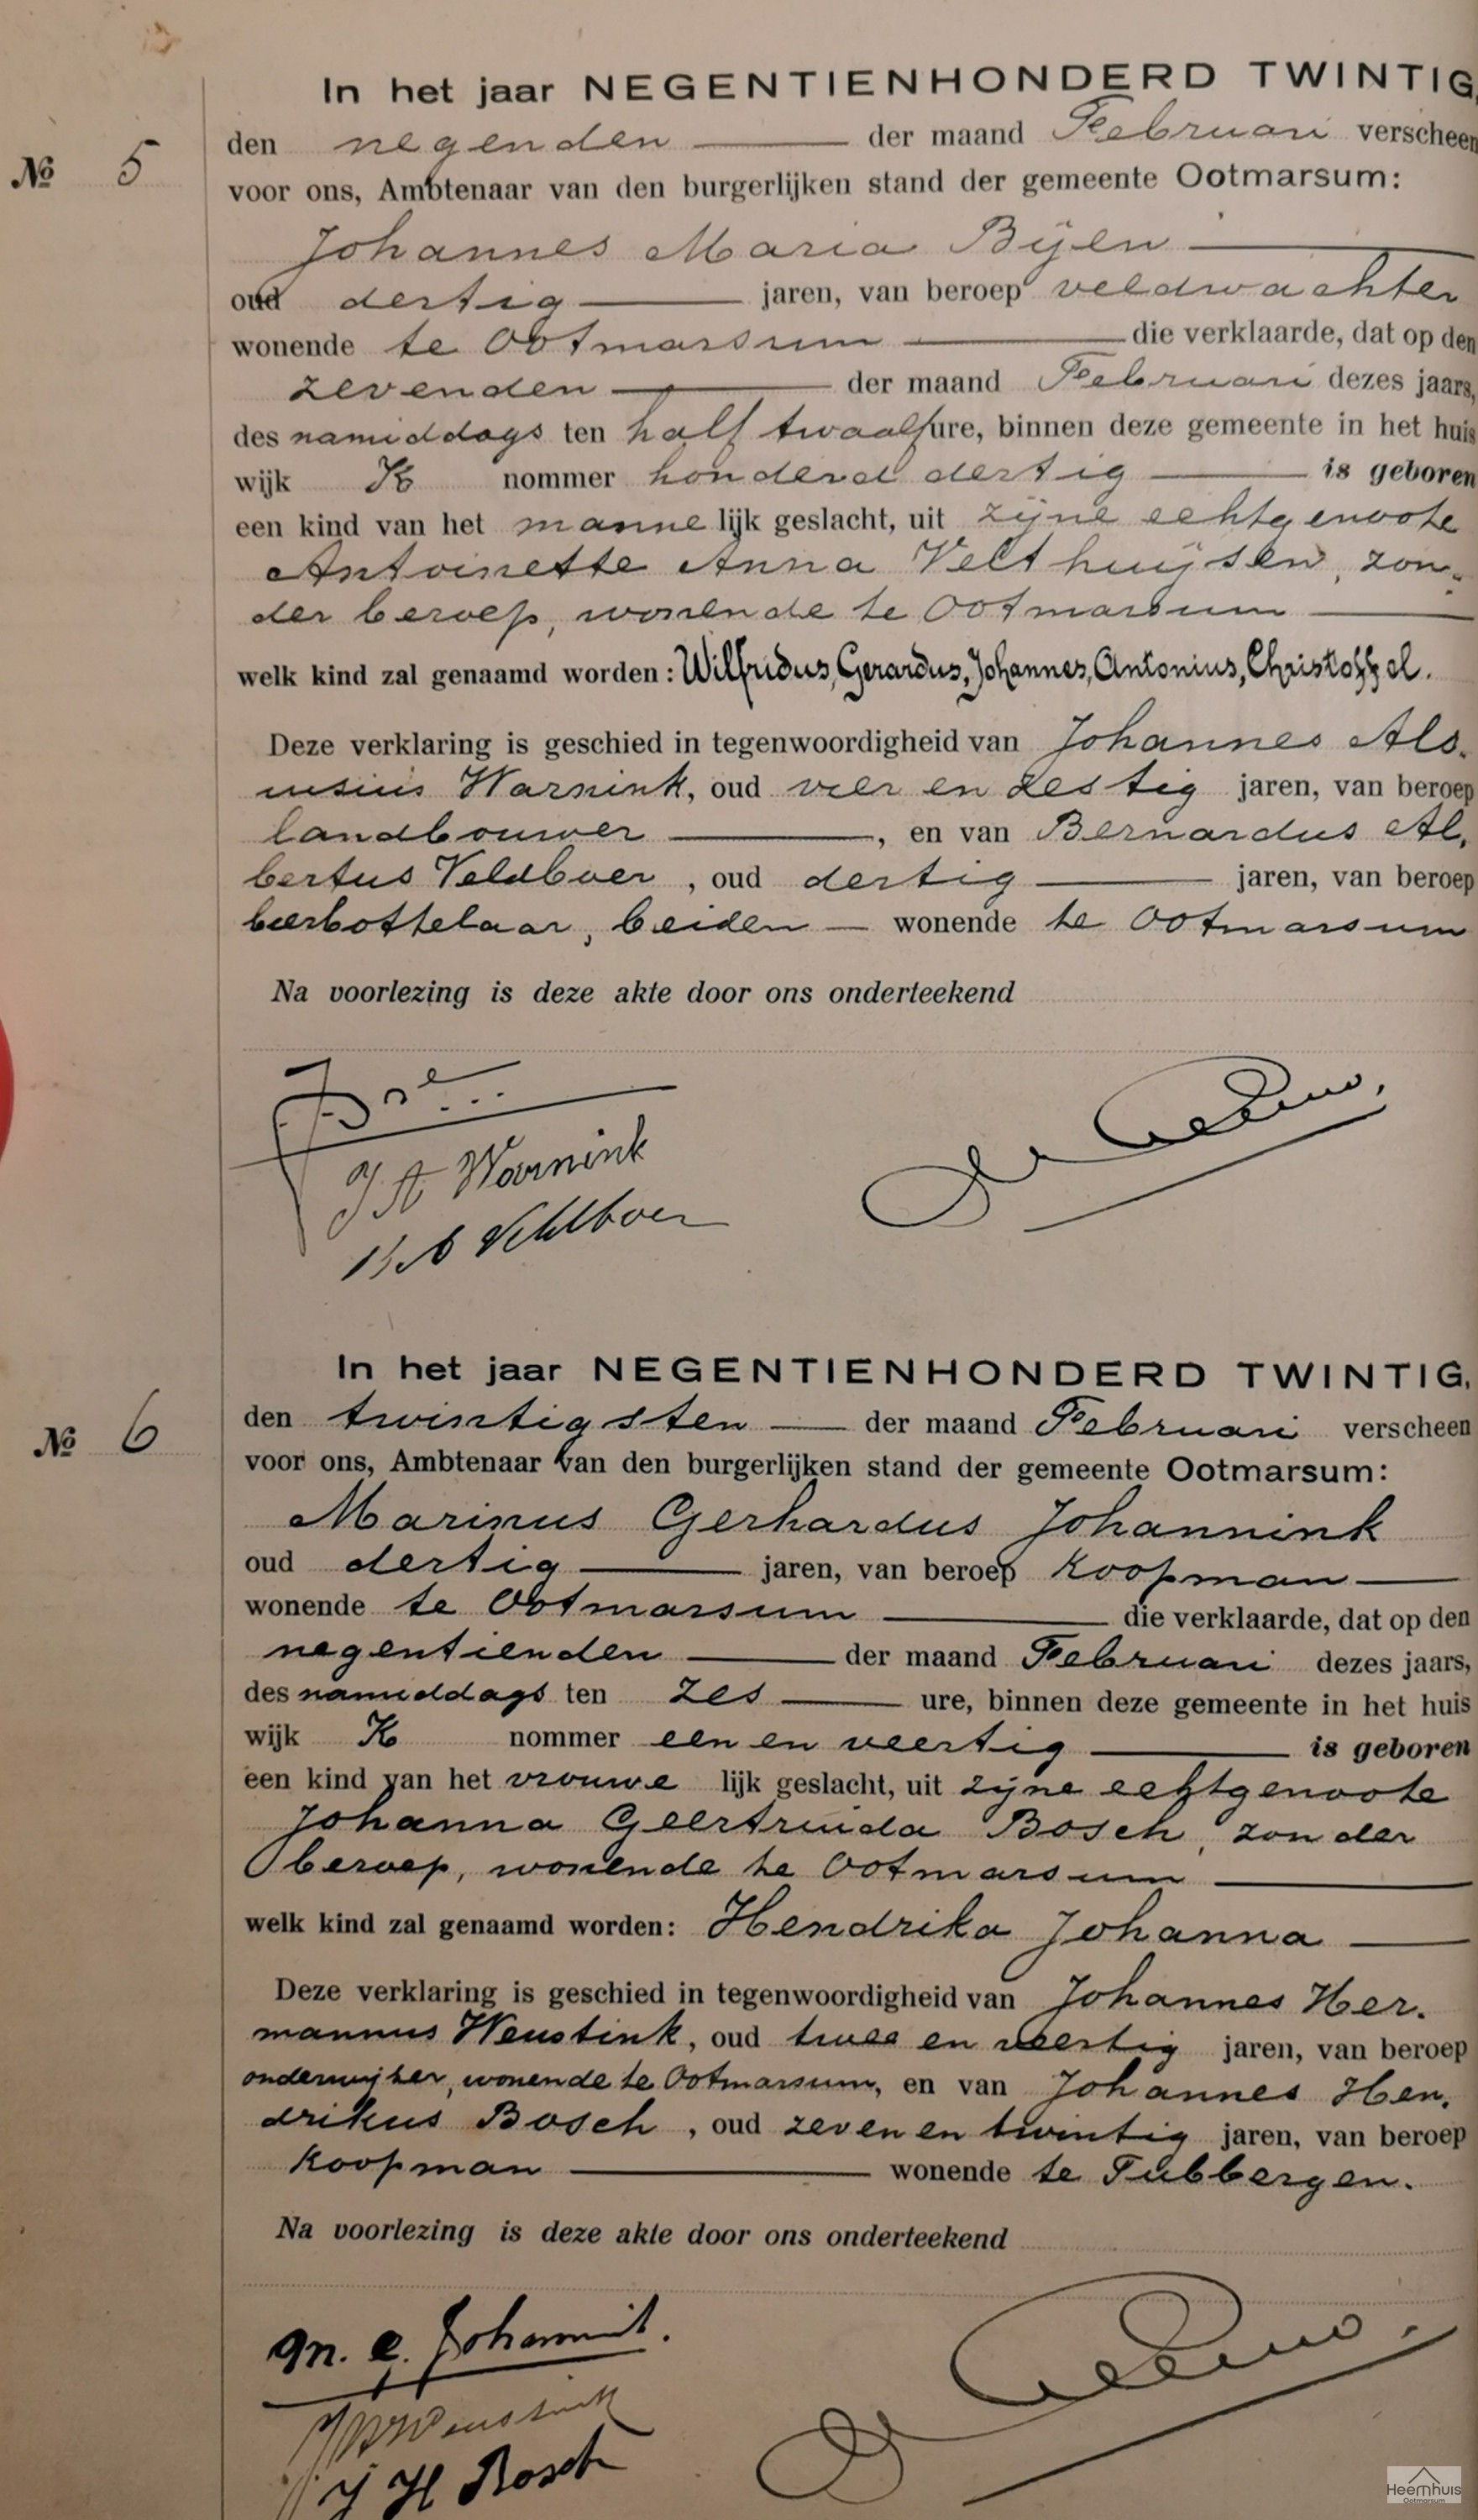 In het jaar NEGENTIENHONDERD TWINTIG,
den negenden der maand Februari verscheen
№ 5
voor ons, Ambtenaar van den burgerlijken stand der gemeente Ootmarsum:
Johannes Maria Bijen
oud dertig jaren, van beroep veldwachter
wonende te Ootmarsum die verklaarde, dat op den
zevenden der maand Februari dezes jaars,
des namiddags ten half twaalf ure, binnen deze gemeente in het huis
wijk K nommer honderd dertig is geboren
een kind van het manne lijk geslacht, uit zijne echtgenoote
Antoinette Anna Velthuijsen, zon-
der beroep, wonende te Ootmarsum
welk kind zal genaamd worden: Wilfridus, Gerardus, Johannes, Antonius, Christoffel.
Deze verklaring is geschied in tegenwoordigheid van Johannes Alo-
insius Warnink, oud vier en zestig jaren, van beroep
landbouwer, en van Bernardus Al,
bertus Veldboer, oud dertig jaren, van beroep
bierbottelaar, beiden wonende te Ootmarsum
Na voorlezing is deze akte door ons onderteekend
J A Warnink
B A Veldboer
In het jaar NEGENTIENHONDERD TWINTIG,
den twintigsten der maand Februari verscheen
№ 6
voor ons, Ambtenaar van den burgerlijken stand der gemeente Ootmarsum:
Marinus Gerhardus Johannink
oud dertig jaren, van beroep koopman
wonende te Ootmarsum die verklaarde, dat op den
negentienden der maand Februari dezes jaars,
des namiddags ten zes ure, binnen deze gemeente in het huis
wijk K nommer een en veertig is geboren
een kind van het vrouwe lijk geslacht, uit zijne echtgenoote
Johanna Geertruida Bosch, zonder
beroep, wonende te Ootmarsum
welk kind zal genaamd worden: Hendrika Johanna
Deze verklaring is geschied in tegenwoordigheid van Johannes Her-
mannus Weustink, oud twee en veertig jaren, van beroep
onderwijzer, wonende te Ootmarsum, en van Johannes Hen,
drikus Bosch, oud zeven en twintig jaren, van beroep
koopman wonende te Tubbergen.
Na voorlezing is deze akte door ons onderteekend
M. G. Johannink.
J H Weustink
J H Bosch
Heemhuis
Ootmarsum